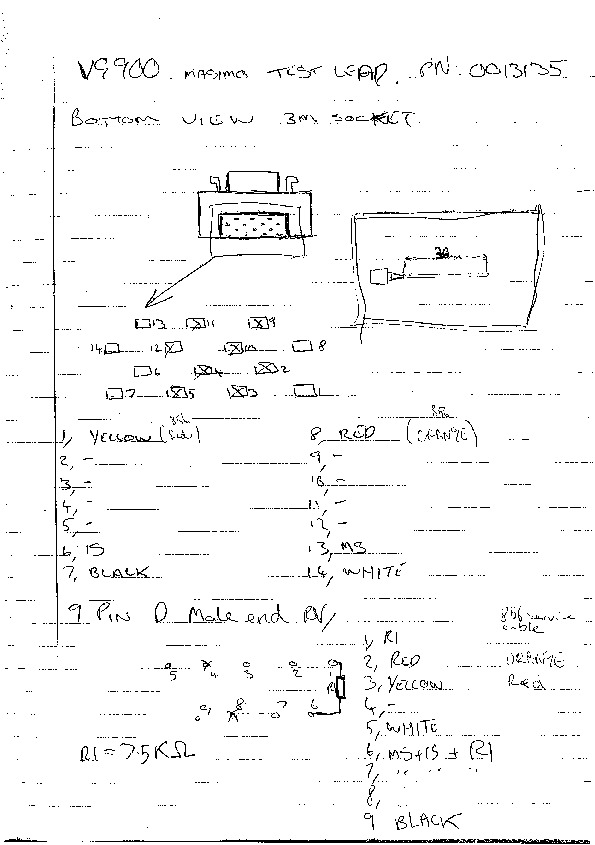 V9900 MASIMO TEST LEAD. PN: 0013135
BOTTOM VIEW 3M SOCKET
3M
13 11 9
14 12 10 8
6 4 2
7 5 3 1
1, YELLOW (RED)
2, -
3, -
4, -
5, -
6, IS
7, BLACK
8, RED (ORANGE)
9, -
10, -
11, -
12, -
13, MS
14, WHITE
9 PIN D Male end
service cable
5 4 3 2 1
R1
9 8 7 6
R1 = 7.5KΩ
1, R1
2, RED ORANGE
3, YELLOW RED
4, -
5, WHITE
6, MS+IS + R1
7, " " " "
8,
9 BLACK